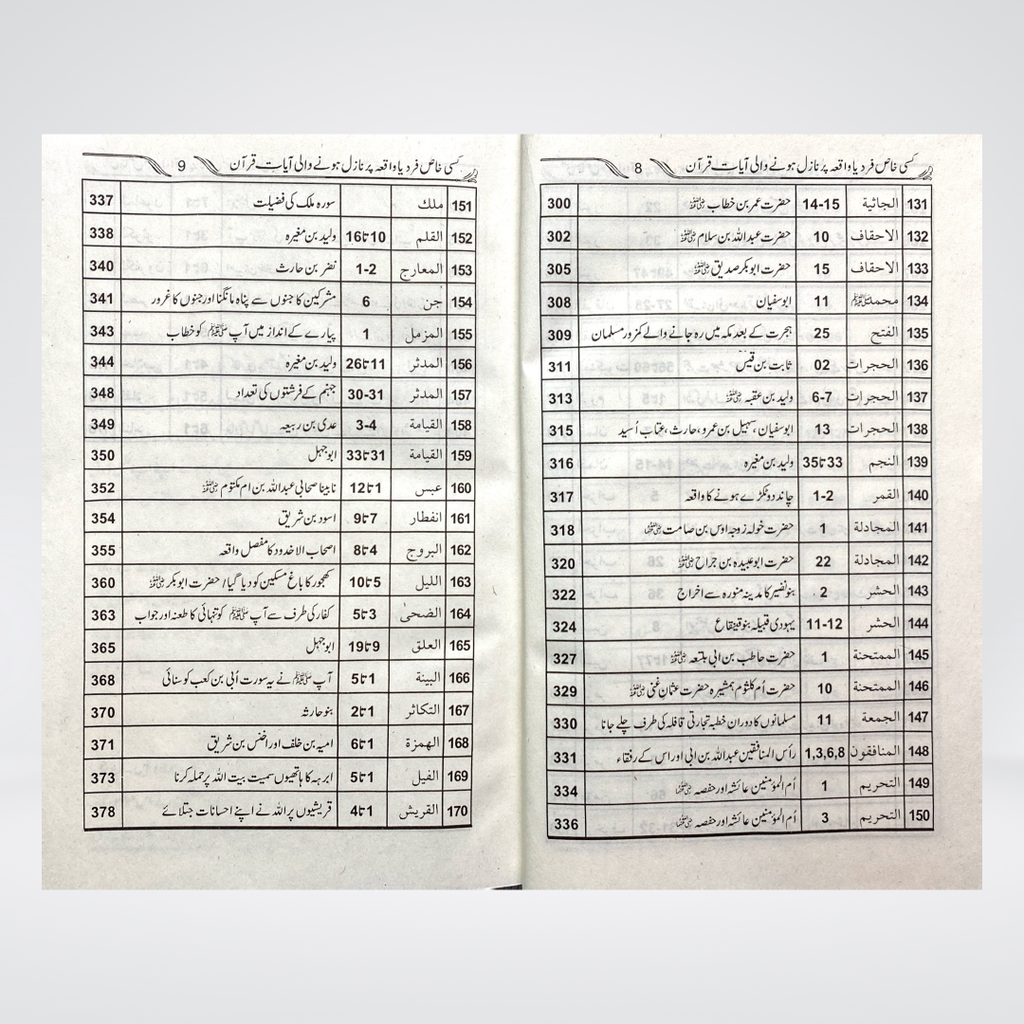 کسی خاص فرد یا واقعہ پر نازل ہونے والی آیات قرآن 8
131 الجاثیة 14-15 حضرت عمر بن خطاب ؓ 300
132 الاحقاف 10 حضرت عبداللہ بن سلام ؓ 302
133 الاحقاف 15 حضرت ابوبکر صدیق ؓ 305
134 محمد ﷺ 11 ابوسفیان 308
135 الفتح 25 ہجرت کے بعد مکہ میں رہ جانے والے کمزور مسلمان 309
136 الحجرات 02 ثابت بن قیس 311
137 الحجرات 6-7 ولید بن عقبہ ؓ 313
138 الحجرات 13 ابوسفیان، سہیل بن عمرو، حارث، عتاب اُسید 315
139 النجم 33 تا 35 ولید بن مغیرہ 316
140 القمر 1-2 چاند دو ٹکڑے ہونے کا واقعہ 317
141 المجادلة 1 حضرت خولہ زوجہ اوس بن صامت ؓ 318
142 المجادلة 22 حضرت ابوعبیدہ بن جراح ؓ 320
143 الحشر 2 بنونضیر کا مدینہ منورہ سے اخراج 322
144 الحشر 11-12 یہودی قبیلہ بنوقینقاع 324
145 الممتحنة 1 حضرت حاطب بن ابی بلتعہ ؓ 327
146 الممتحنة 10 حضرت اُم کلثوم ہمشیرہ حضرت عثمان غنی ؓ 329
147 الجمعة 11 مسلمانوں کا دوران خطبہ تجارتی قافلہ کی طرف چلے جانا 330
148 المنافقون 1,3,6,8 رأس المنافقین عبداللہ بن ابی اور اس کے رفقاء 331
149 التحریم 1 اُم المؤمنین عائشہ اور حفصہ ؓ 334
150 التحریم 3 اُم المؤمنین عائشہ اور حفصہ ؓ 336
کسی خاص فرد یا واقعہ پر نازل ہونے والی آیات قرآن 9
151 ملك سورہ ملک کی فضیلت 337
152 القلم 10 تا 16 ولید بن مغیرہ 338
153 المعارج 1-2 نضر بن حارث 340
154 جن 6 مشرکین کا جنوں سے پناہ مانگنا اور جنوں کا غرور 341
155 المزمل 1 پیارے کے انداز میں آپ ﷺ کو خطاب 343
156 المدثر 11 تا 26 ولید بن مغیرہ 344
157 المدثر 30-31 جہنم کے فرشتوں کی تعداد 348
158 القیامة 3-4 عدی بن ربیعہ 349
159 القیامة 31 تا 33 ابوجہل 350
160 عبس 1 تا 12 نابینا صحابی عبداللہ بن ام مکتوم ؓ 352
161 انفطار 7 تا 9 اسود بن شریق 354
162 البروج 4 تا 8 اصحاب الاخدود کا مفصل واقعہ 355
163 اللیل 5 تا 10 کھجور کا باغ مسکین کو دیا گیا / حضرت ابوبکر ؓ 360
164 الضحیٰ 3 تا 5 کفار کی طرف سے آپ ﷺ کو تنہائی کا طعنہ اور جواب 363
165 العلق 9 تا 19 ابوجہل 365
166 البینة 1 تا 5 آپ ﷺ نے یہ سورت اُبی بن کعب کو سنائی 368
167 التکاثر 1 تا 2 بنوحارثہ 370
168 الهمزة 1 تا 6 امیہ بن خلف اور اخنس بن شریق 371
169 الفیل 1 تا 5 ابرہہ کا ہاتھیوں سمیت بیت اللہ پر حملہ کرنا 373
170 القریش 1 تا 4 قریشیوں پر اللہ نے اپنے احسانات جتلائے 378